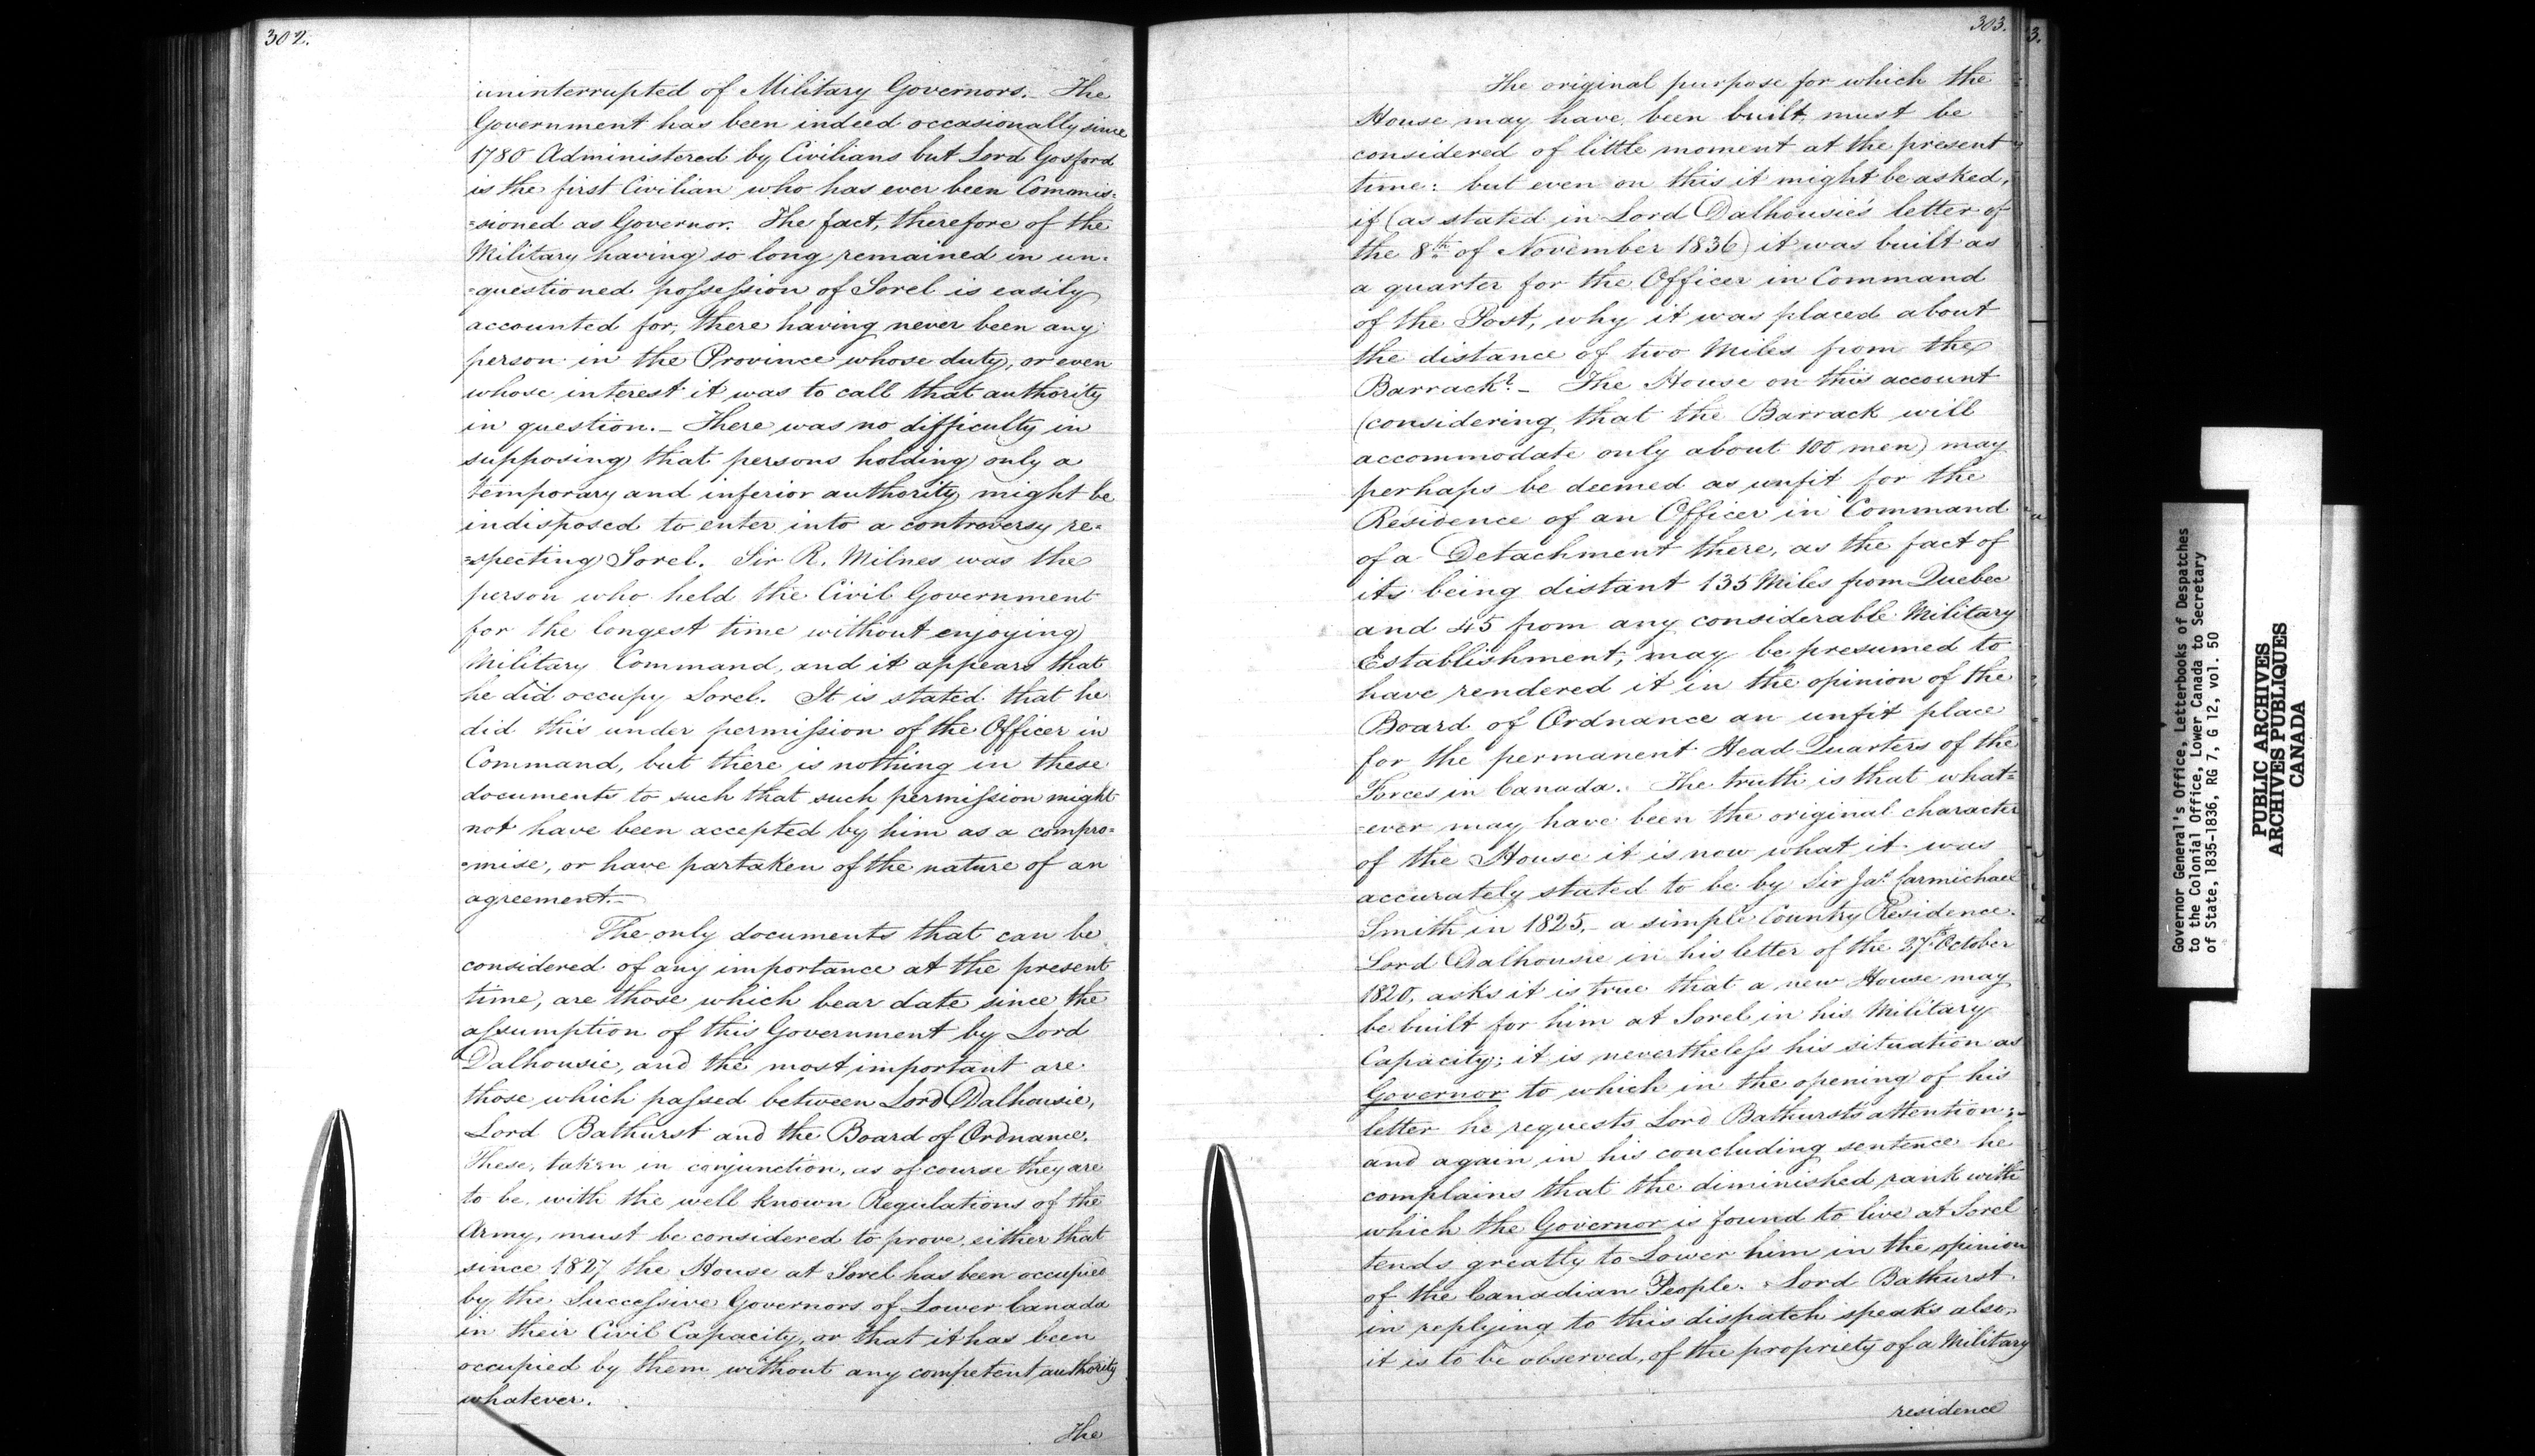 302.
uninterrupted of Military Governors. — The
Government has been indeed occasionally since
1780 Administered by Civilians but Lord Gosford
is the first Civilian who has ever been Commis-
=sioned as Governor. The fact, therefore of the
Military having so long remained in un-
=questioned possession of Sorel is easily
accounted for, there having never been any
person in the Province whose duty, or even
whose interest it was to call that authority
in question. — There was no difficulty in
supposing that persons holding only a
temporary and inferior authority might be
indisposed to enter into a controversy re=
=specting Sorel. Sir R. Milnes was the
person who held the Civil Government
for the longest time without enjoying
Military Command, and it appears that
he did occupy Sorel. It is stated that he
did this under permission of the Officer in
Command, but there is nothing in these
documents to such that such permission might
not have been accepted by him as a compro=
=mise, or have partaken of the nature of an
agreement. —
The only documents that can be
considered of any importance at the present
time, are those which bear date since the
assumption of this Government by Lord
Dalhousie, and the most important are
those which passed between Lord Dalhousie,
Lord Bathurst and the Board of Ordnance.
These, taken in conjunction, as of course they are
to be, with the well known Regulations of the
Army, must be considered to prove, either that
since 1827 the House at Sorel has been occupied
by the Successive Governors of Lower Canada
in their Civil Capacity, or that it has been
occupied by them without any competent authority
whatever.
The
303.
3.
The original purpose for which the
House may have been built, must be
considered of little moment at the present
time: but even on this it might be asked,
if (as stated in Lord Dalhousie's letter of
the 8th of November 1836) it was built as
a quarter for the Officer in Command
of the Post, why it was placed about
the distance of two Miles from the
Barrack? — The House on this account
(considering that the Barrack will
accommodate only about 100 men) may
perhaps be deemed as unfit for the
Residence of an Officer in Command
of a Detachment there, as the fact of
its being distant 135 Miles from Quebec
and 45 from any considerable Military
Establishment, may be presumed to
have rendered it in the opinion of the
Board of Ordnance an unfit place
for the permanent Head Quarters of the
Forces in Canada. The truth is that what=
=ever may have been the original character
of the House it is now what it was
accurately stated to be by Sir Jas. Carmichael
Smith in 1825, — a simple Country Residence.
Lord Dalhousie in his letter of the 27th October
1820, asks it is true that a new House may
be built for him at Sorel in his Military
Capacity; it is nevertheless his situation as
Governor to which in the opening of his
letter he requests Lord Bathurst's attention; —
and again in his concluding sentence he
complains that the diminished rank with
which the Governor is found to live at Sorel
tends greatly to Lower him in the opinion
of the Canadian People. Lord Bathurst
in replying to this dispatch speaks also,
it is to be observed, of the propriety of a Military
residence
Governor General's Office, Letterbooks of Despatches
to the Colonial Office, Lower Canada to Secretary
of State, 1835-1836, RG 7, G 12, vol. 50
PUBLIC ARCHIVES
ARCHIVES PUBLIQUES
CANADA